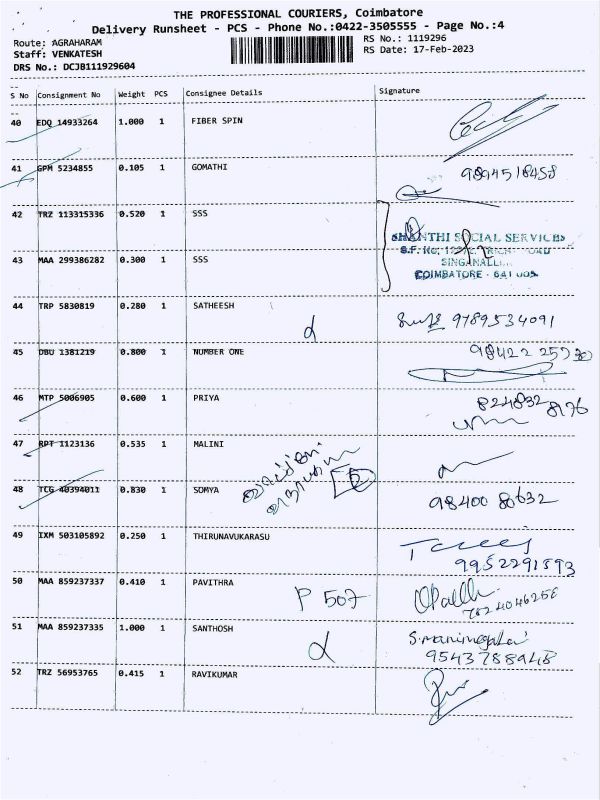 THE PROFESSIONAL COURIERS, Coimbatore
Delivery Runsheet - PCS - Phone No.:0422-3505555 - Page No.:4
Route: AGRAHARAM
RS No.: 1119296
Staff: VENKATESH
RS Date: 17-Feb-2023
DRS No.: DCJB111929604
S No Consignment No Weight PCS Consignee Details Signature
40 EDQ 14933264 1.000 1 FIBER SPIN
41 GPM 5234855 0.105 1 GOMATHI 9894518458
42 TRZ 113315336 0.520 1 SSS
SHANTHI SOCIAL SERVICES
43 MAA 299386282 0.300 1 SSS
SINGANALL
COIMBATORE - 641 005
44 TRP 5830819 0.280 1 SATHEESH 9789534091
d
45 DBU 1381219 0.800 1 NUMBER ONE
46 MTP 5006905 0.600 1 PRIYA 824832 8176
47 RPT 1123136 0.535 1 MALINI
48 TCG 40394011 0.830 1 SOMYA 98400 80632
49 IXM 503105892 0.250 1 THIRUNAVUKARASU
9952291593
50 MAA 859237337 0.410 1 PAVITHRA P 507
7824046258
51 MAA 859237335 1.000 1 SANTHOSH S.manimegalai
d 9543788948
52 TRZ 56953765 0.415 1 RAVIKUMAR